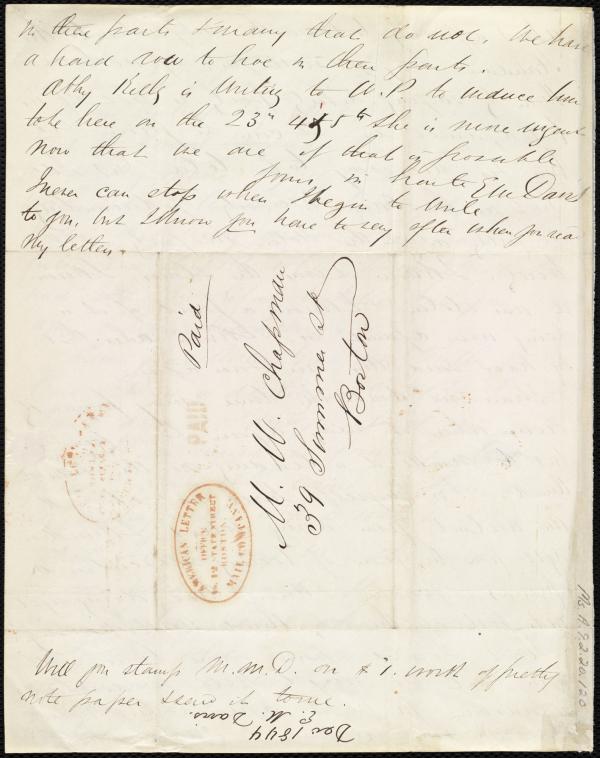 in these parts & many that do not. We have
a hard row to hoe in these parts.
Abby Kelly is writing to W.P. to induce him
to be here on the 23rd 4 & 5th She is more urgent
now than we are if that is possible
Yours in haste E M Davis
I never can stop when I begin to write
to you, but I know you have to sey after when you rea
my letters.
Paid
PAID
M. W. Chapman
39 Summer st
Boston
AMERICAN LETTER
MAIL COMPANY.
OFFICE
No. 12 STATE STREET
BOSTON
Will you stamp M. M. D. on $1. worth of pretty
note paper & send it to me.
E. M. Davis.
Dec 1844
Ms. A.9.2.20.120